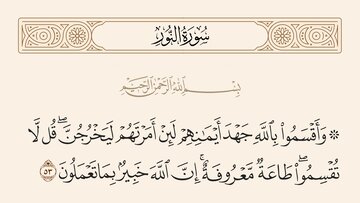 سُورَةُ النُّورِ
بِسْمِ اللَّهِ الرَّحْمَٰنِ الرَّحِيمِ
۞ وَأَقْسَمُوا۟ بِٱللَّهِ جَهْدَ أَيْمَـٰنِهِمْ لَئِنْ أَمَرْتَهُمْ لَيَخْرُجُنَّ ۖ قُل لَّا
تُقْسِمُوا۟ ۖ طَاعَةٌ مَّعْرُوفَةٌ ۚ إِنَّ ٱللَّهَ خَبِيرٌۢ بِمَا تَعْمَلُونَ ٥٣